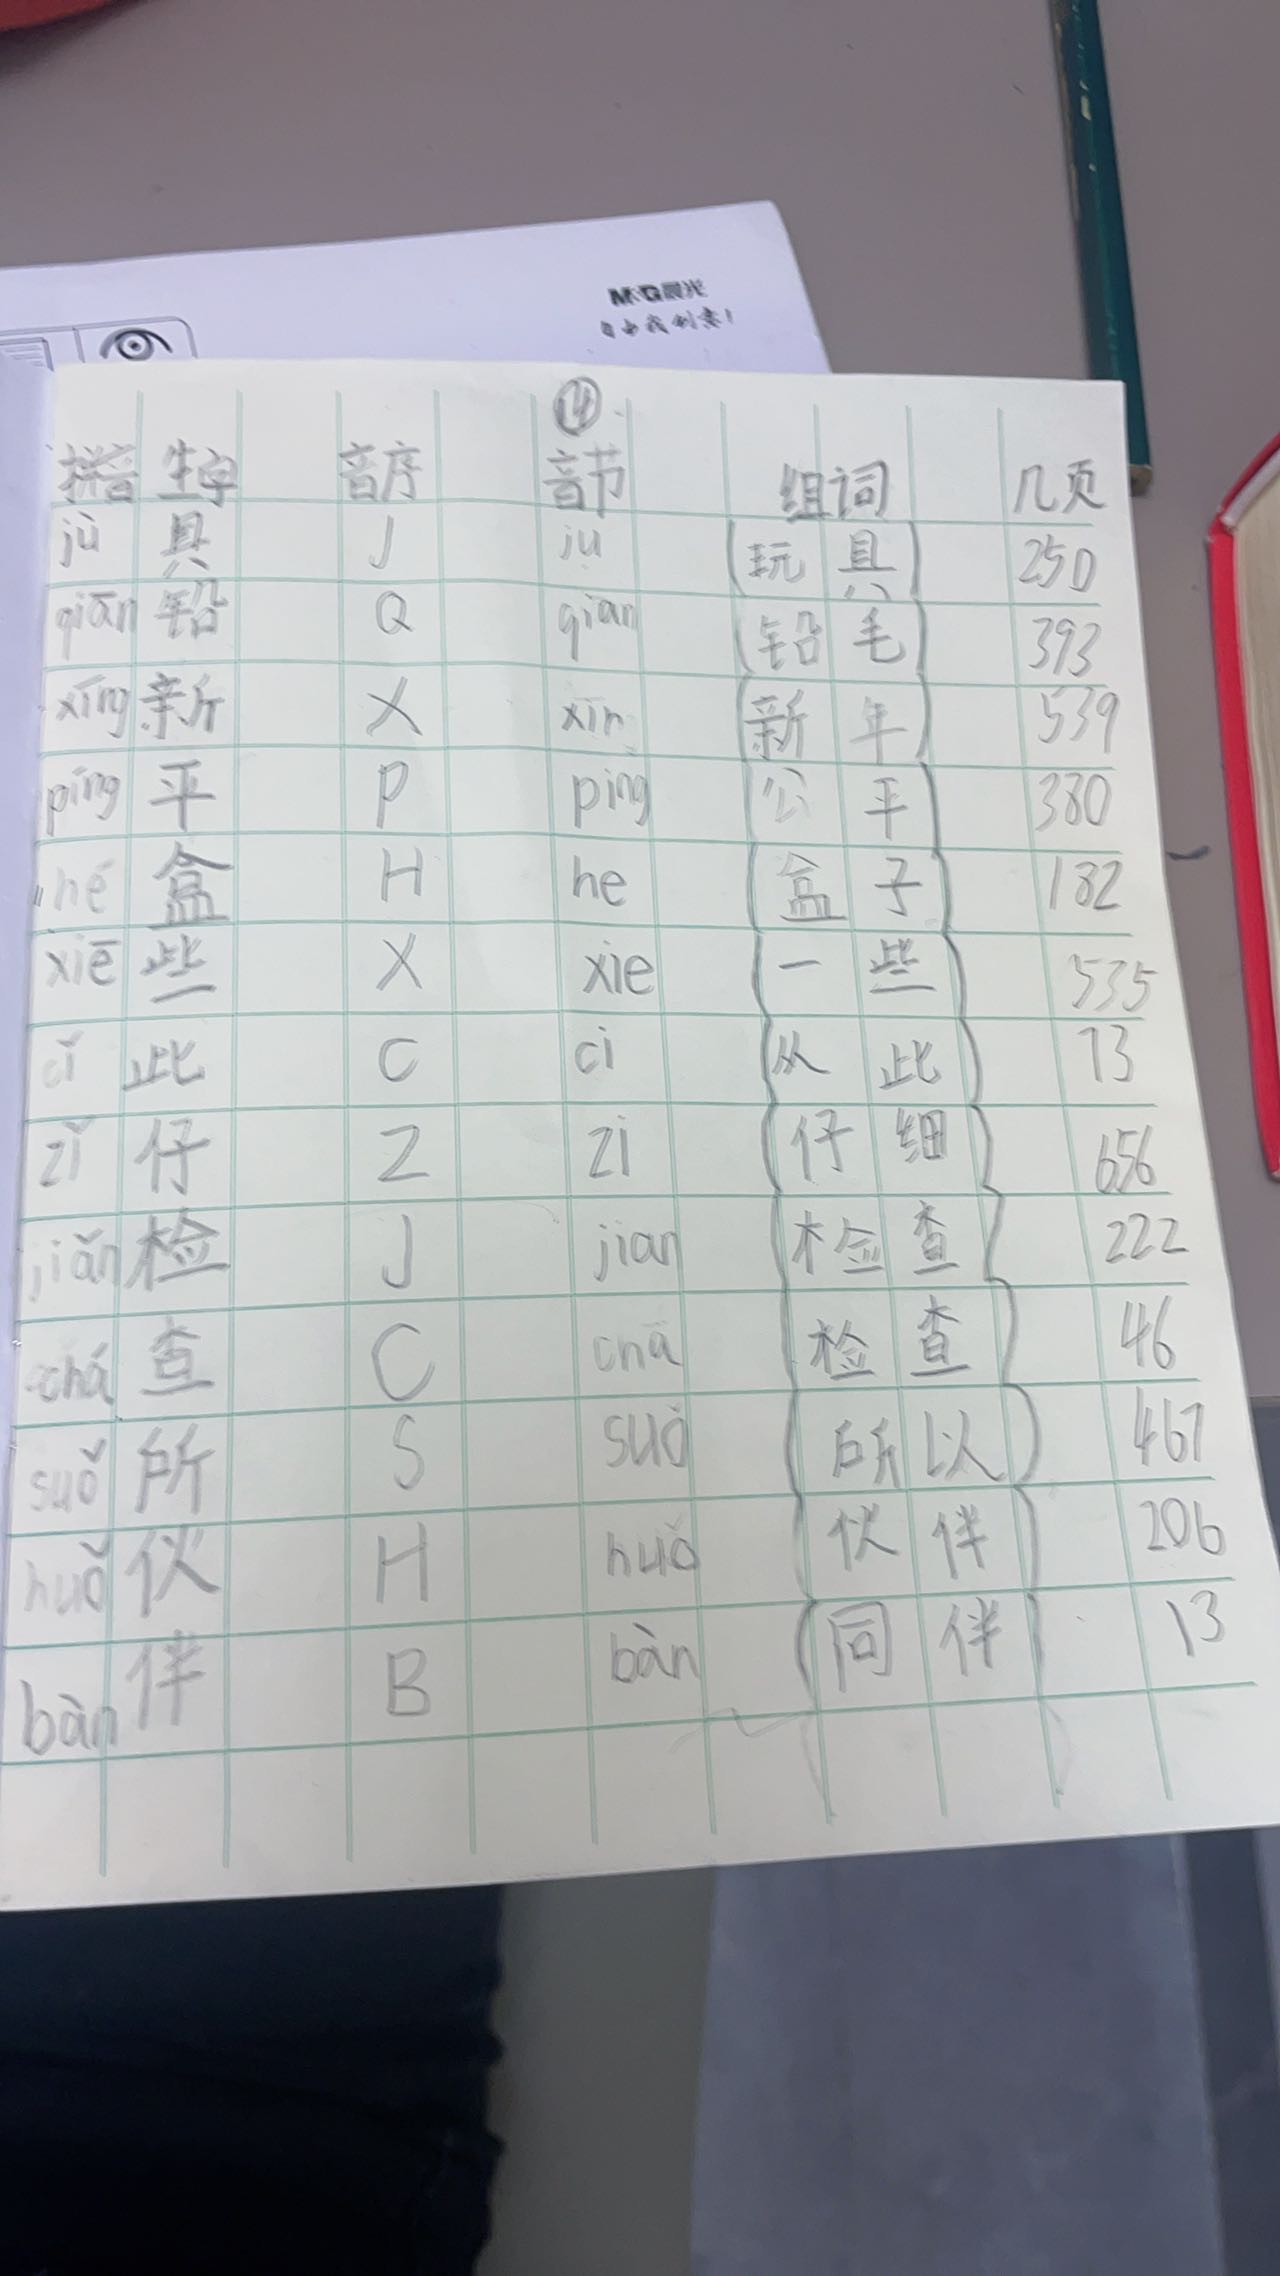 M&G晨光
⑭
拼音 生字 音序 音节 组词 几页
jù 具 J ju (玩具) 250
qiān 铅 Q qian (铅毛) 393
xīng 新 X xin (新年) 539
píng 平 P ping (公平) 380
hé 盒 H he (盒子) 182
xiē 些 X xie (一些) 535
cǐ 此 C ci (从此) 73
zǐ 仔 Z zi (仔细) 656
jiǎn 检 J jian (检查) 222
chá 查 C cha (检查) 46
suǒ 所 S suǒ (所以) 467
huǒ 伙 H huǒ (伙伴) 206
bàn 伴 B bàn (同伴) 13